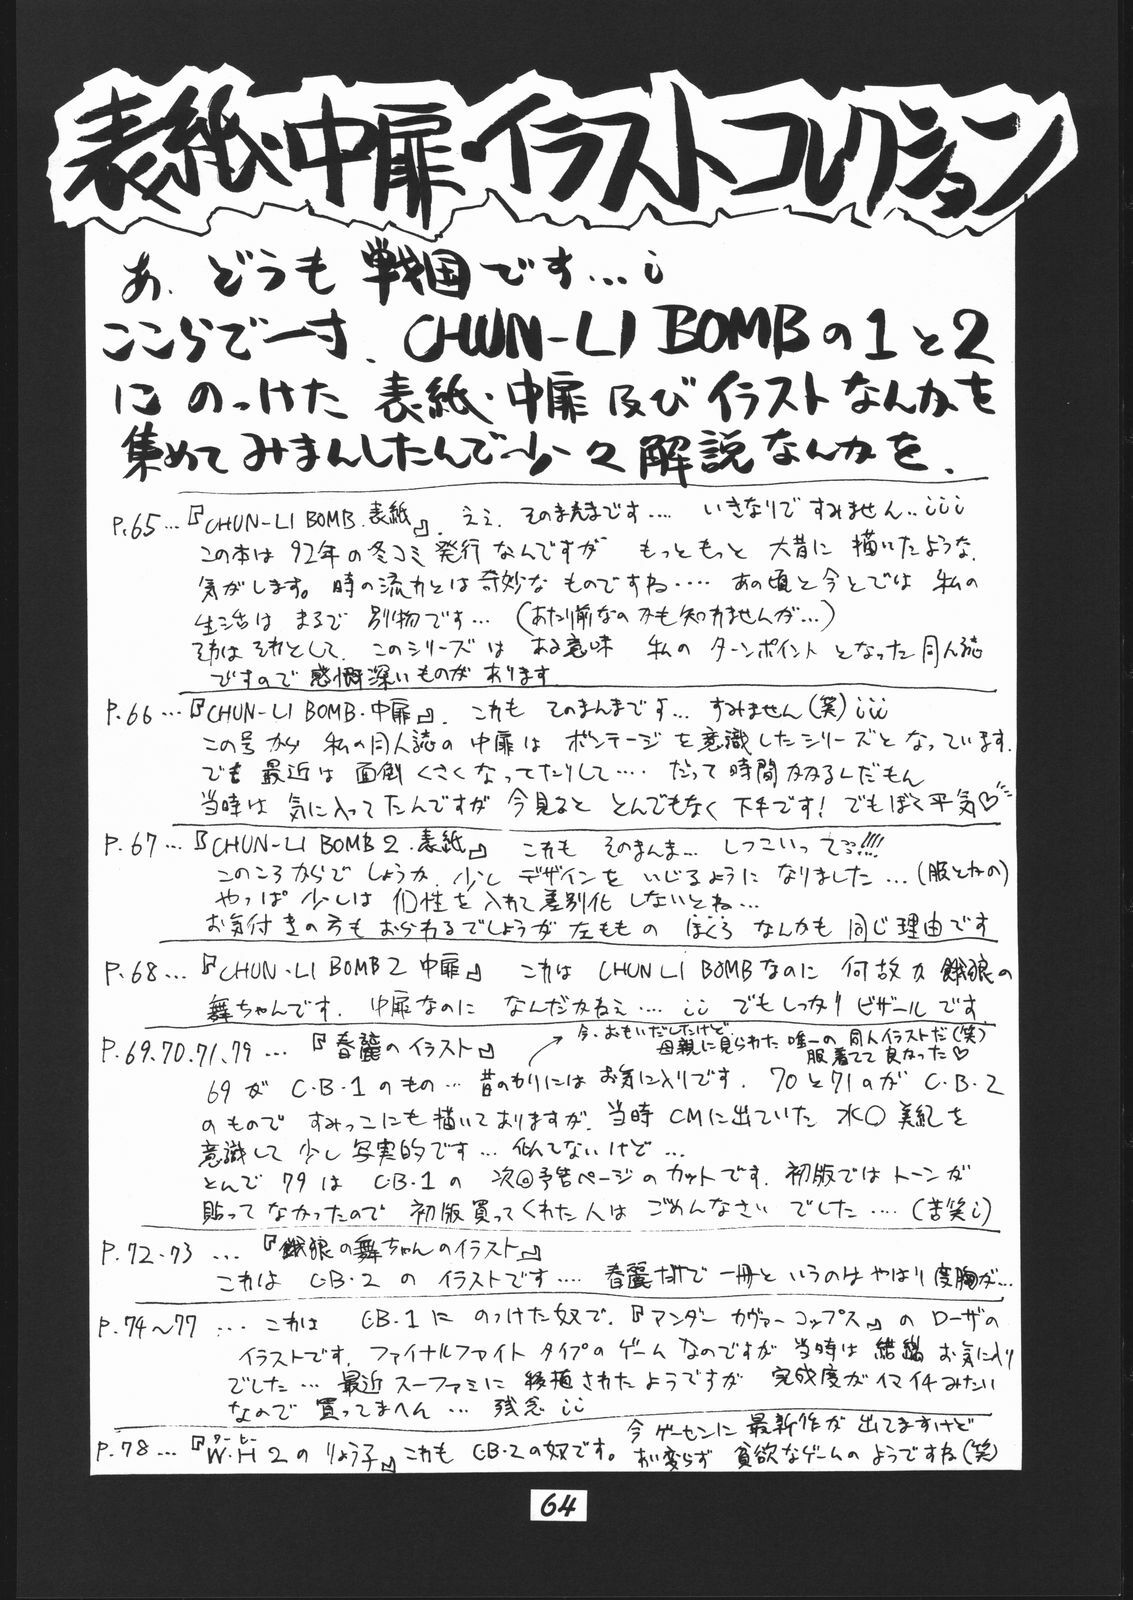 表紙・中扉・イラストコレクション
あ、どうも戦国です…i
ここらで一寸、CHUN-LI BOMBの1と2
にのっけた表紙・中扉及びイラストなんかを
集めてみまんしたんで少々解説なんかを、
P.65…『CHUN-LI BOMB.表紙』、ええ、そのまんまです…. いきなりですみません..iii
この本は92年の冬コミ発行なんですが もっともっと大昔に描いたような、
気がします。時の流れとは奇妙なものですね…. あの頃と今とでは私の
生活はまるで別物です…(あたり前なのかも知れませんが…)
それはそれとして、このシリーズはある意味 私のターンポイントとなった同人誌
ですので感慨深いものがあります
P.66…『CHUN-LI BOMB・中扉』、これもそのまんまです… すみません(笑)iii
この号から 私の同人誌の中扉はボンテージを意識したシリーズとなっています.
でも最近は面倒くさくなってたりして…. だって時間かかるんだもん
当時は気に入ってたんですが今見るととんでもなく下手です! でもぼく平気♡
P.67…『CHUN-LI BOMB2.表紙』 これもそのまんま… しつこいって!!!!
このころからでしょうか、少しデザインをいじるようになりました…(服とかの)
やっぱ少しは個性を入れて差別化しないとね…
お気付きの方もおられるでしょうが左もものほくろなんかも同じ理由です
P.68…『CHUN-LI BOMB2 中扉』 これはCHUN LI BOMBなのに何故か餓狼の
舞ちゃんです. 中扉なのになんだかねえ….ii でもしっかりビザールです
P.69.70.71.79…『春麗のイラスト』
今、おもいだしたけど、
母親に見られた唯一の同人イラストだ(笑)
服着てて良かった♡
69がC.B.1のもの… 昔のわりにはお気に入りです. 70と71のがC.B.2
のものですみっこにも描いておりますが、当時CMに出ていた水○美紀を
意識して少し写実的です… 似てないけど…
とんで79はC.B.1の次回予告ページのカットです. 初版ではトーンが
貼ってなかったので初版買ってくれた人はごめんなさいでした….(苦笑i)
P.72.73…『餓狼の舞ちゃんのイラスト』
これはC.B.2のイラストです…. 春麗だけで一冊というのはやはり度胸が…
P.74〜77…これはC.B.1にのっけた奴で、『アンダーカヴァーコップス』のローザの
イラストです. ファイナルファイトタイプのゲームなのですが当時は結構お気に入り
でした… 最近スーファミに移植されたようですが完成度がイマイチみたい
なので買ってまへん… 残念ii
P.78…『W.H2のりょう子』これもC.B.2の奴です。
ダーヒー
今ゲーセンに最新作が出てますけど
あい変らず貧欲なゲームのようですね(笑)
64